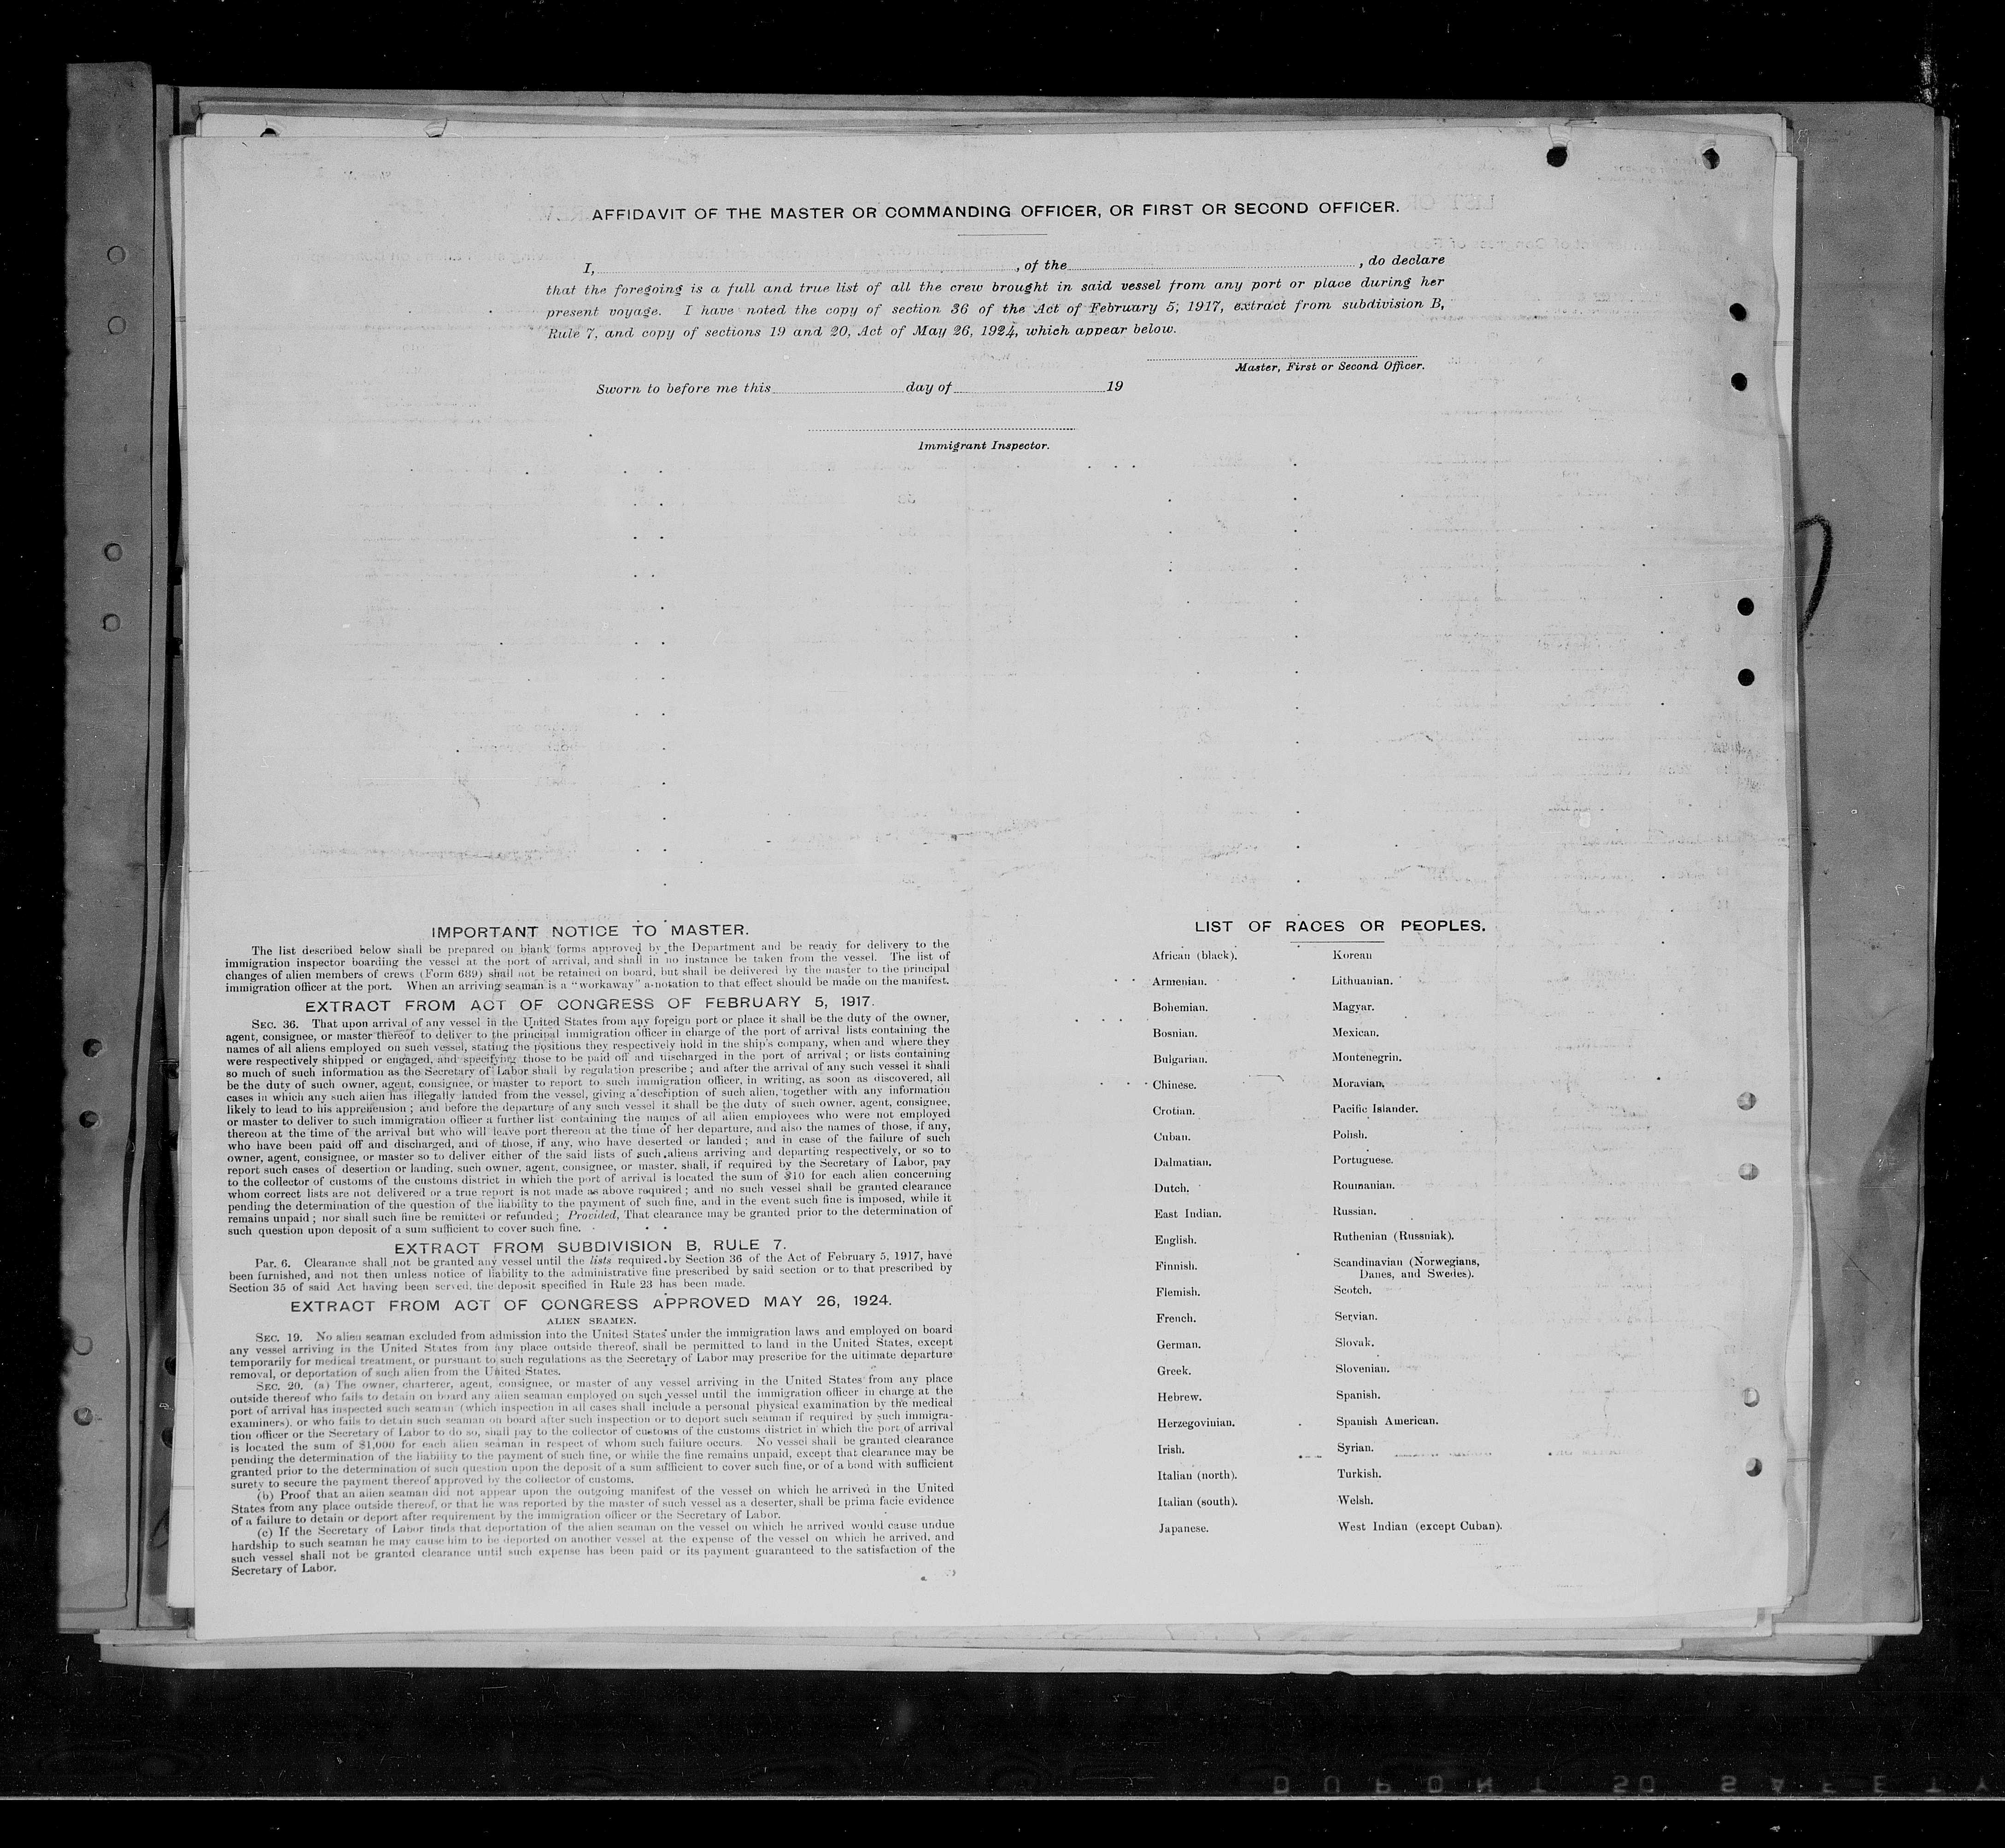 AFFIDAVIT OF THE MASTER OR COMMANDING OFFICER, OR FIRST OR SECOND OFFICER.
I, , of the , do declare
that the foregoing is a full and true list of all the crew brought in said vessel from any port or place during her
present voyage. I have noted the copy of section 36 of the Act of February 5, 1917, extract from subdivision B,
Rule 7, and copy of sections 19 and 20, Act of May 26, 1924, which appear below.
Master, First or Second Officer.
Sworn to before me this day of 19
Immigrant Inspector.
IMPORTANT NOTICE TO MASTER.
The list described below shall be prepared on blank forms approved by the Department and be ready for delivery to the
immigration inspector boarding the vessel at the port of arrival, and shall in no instance be taken from the vessel. The list of
changes of alien members of crews (Form 689) shall not be retained on board, but shall be delivered by the master to the principal
immigration officer at the port. When an arriving seaman is a "workaway" a notation to that effect should be made on the manifest.
EXTRACT FROM ACT OF CONGRESS OF FEBRUARY 5, 1917.
SEC. 36. That upon arrival of any vessel in the United States from any foreign port or place it shall be the duty of the owner,
agent, consignee, or master thereof to deliver to the principal immigration officer in charge of the port of arrival lists containing the
names of all aliens employed on such vessel, stating the positions they respectively hold in the ship's company, when and where they
were respectively shipped or engaged, and specifying those to be paid off and discharged in the port of arrival; or lists containing
so much of such information as the Secretary of Labor shall by regulation prescribe; and after the arrival of any such vessel it shall
be the duty of such owner, agent, consignee, or master to report to such immigration officer, in writing, as soon as discovered, all
cases in which any such alien has illegally landed from the vessel, giving a description of such alien, together with any information
likely to lead to his apprehension; and before the departure of any such vessel it shall be the duty of such owner, agent, consignee,
or master to deliver to such immigration officer a further list containing the names of all alien employees who were not employed
thereon at the time of the arrival but who will leave port thereon at the time of her departure, and also the names of those, if any,
who have been paid off and discharged, and of those, if any, who have deserted or landed; and in case of the failure of such
owner, agent, consignee, or master so to deliver either of the said lists of such aliens arriving and departing respectively, or so to
report such cases of desertion or landing, such owner, agent, consignee, or master, shall, if required by the Secretary of Labor, pay
to the collector of customs of the customs district in which the port of arrival is located the sum of $10 for each alien concerning
whom correct lists are not delivered or a true report is not made as above required; and no such vessel shall be granted clearance
pending the determination of the question of the liability to the payment of such fine, and in the event such fine is imposed, while it
remains unpaid; nor shall such fine be remitted or refunded; Provided, That clearance may be granted prior to the determination of
such question upon deposit of a sum sufficient to cover such fine.
EXTRACT FROM SUBDIVISION B, RULE 7.
Par. 6. Clearance shall not be granted any vessel until the lists required by Section 36 of the Act of February 5, 1917, have
been furnished, and not then unless notice of liability to the administrative fine prescribed by said section or to that prescribed by
Section 35 of said Act having been served, the deposit specified in Rule 23 has been made.
EXTRACT FROM ACT OF CONGRESS APPROVED MAY 26, 1924.
ALIEN SEAMEN.
SEC. 19. No alien seaman excluded from admission into the United States under the immigration laws and employed on board
any vessel arriving in the United States from any place outside thereof, shall be permitted to land in the United States, except
temporarily for medical treatment, or pursuant to such regulations as the Secretary of Labor may prescribe for the ultimate departure
removal, or deportation of such alien from the United States.
SEC. 20. (a) The owner, charterer, agent, consignee, or master of any vessel arriving in the United States from any place
outside thereof who fails to detain on board any alien seaman employed on such vessel until the immigration officer in charge at the
port of arrival has inspected such seaman (which inspection in all cases shall include a personal physical examination by the medical
examiners), or who fails to detain such seaman on board after such inspection or to deport such seaman if required by such immigra-
tion officer or the Secretary of Labor to do so, shall pay to the collector of customs of the customs district in which the port of arrival
is located the sum of $1,000 for each alien seaman in respect of whom such failure occurs. No vessel shall be granted clearance
pending the determination of the liability to the payment of such fine, or while the fine remains unpaid, except that clearance may be
granted prior to the determination of such question upon the deposit of a sum sufficient to cover such fine, or of a bond with sufficient
surety to secure the payment thereof approved by the collector of customs.
(b) Proof that an alien seaman did not appear upon the outgoing manifest of the vessel on which he arrived in the United
States from any place outside thereof, or that he was reported by the master of such vessel as a deserter, shall be prima facie evidence
of a failure to detain or deport after requirement by the immigration officer or the Secretary of Labor.
(c) If the Secretary of Labor finds that deportation of the alien seaman on the vessel on which he arrived would cause undue
hardship to such seaman he may cause him to be deported on another vessel at the expense of the vessel on which he arrived, and
such vessel shall not be granted clearance until such expense has been paid or its payment guaranteed to the satisfaction of the
Secretary of Labor.
LIST OF RACES OR PEOPLES.
African (black). Korean
Armenian. Lithuanian.
Bohemian. Magyar.
Bosnian. Mexican.
Bulgarian. Montenegrin.
Chinese. Moravian.
Crotian. Pacific Islander.
Cuban. Polish.
Dalmatian. Portuguese.
Dutch. Roumanian.
East Indian. Russian.
English. Ruthenian (Russniak).
Finnish. Scandinavian (Norwegians,
Danes, and Swedes).
Flemish. Scotch.
French. Servian.
German. Slovak.
Greek. Slovenian.
Hebrew. Spanish.
Herzegovinian. Spanish American.
Irish. Syrian.
Italian (north). Turkish.
Italian (south). Welsh.
Japanese. West Indian (except Cuban).
DUPONT SO SAFETY